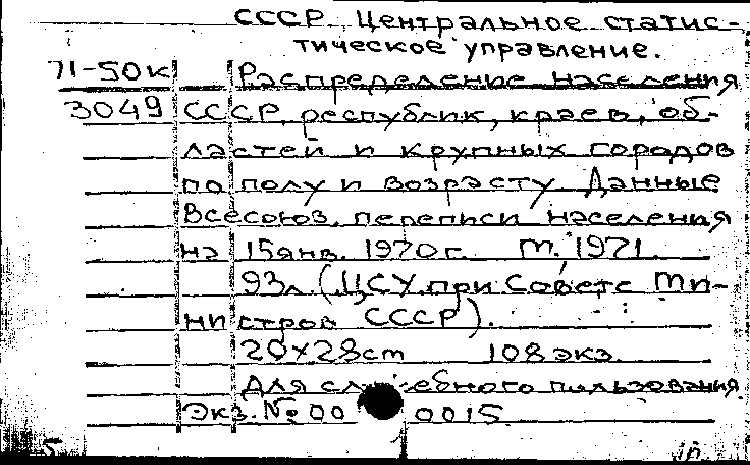 СССР. Центральное статис-
тическое управление.
71-50к Распределение населения
3049 СССР, республик, краев, об-
ластей и крупных городов
по полу и возрасту. Данные
Всесоюз. переписи населения
на 15 янв. 1970 г. М. 1971.
93л. (ЦСУ при Совете Ми-
нистров СССР).
20х28cm 108 экз.
Для служебного пользования
Экз. № 00 0015